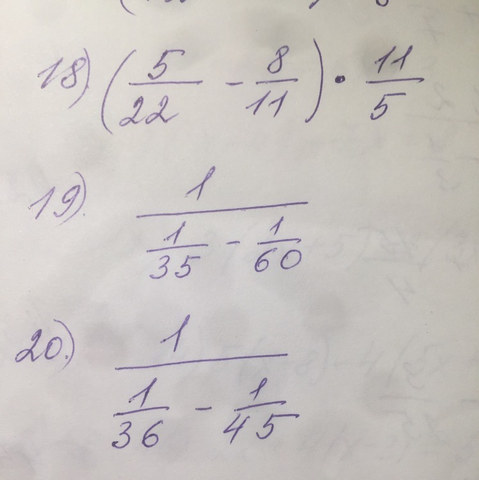 18). (5/22 - 8/11) · 11/5
19). 1/(1/35 - 1/60)
20.) 1/(1/36 - 1/45)